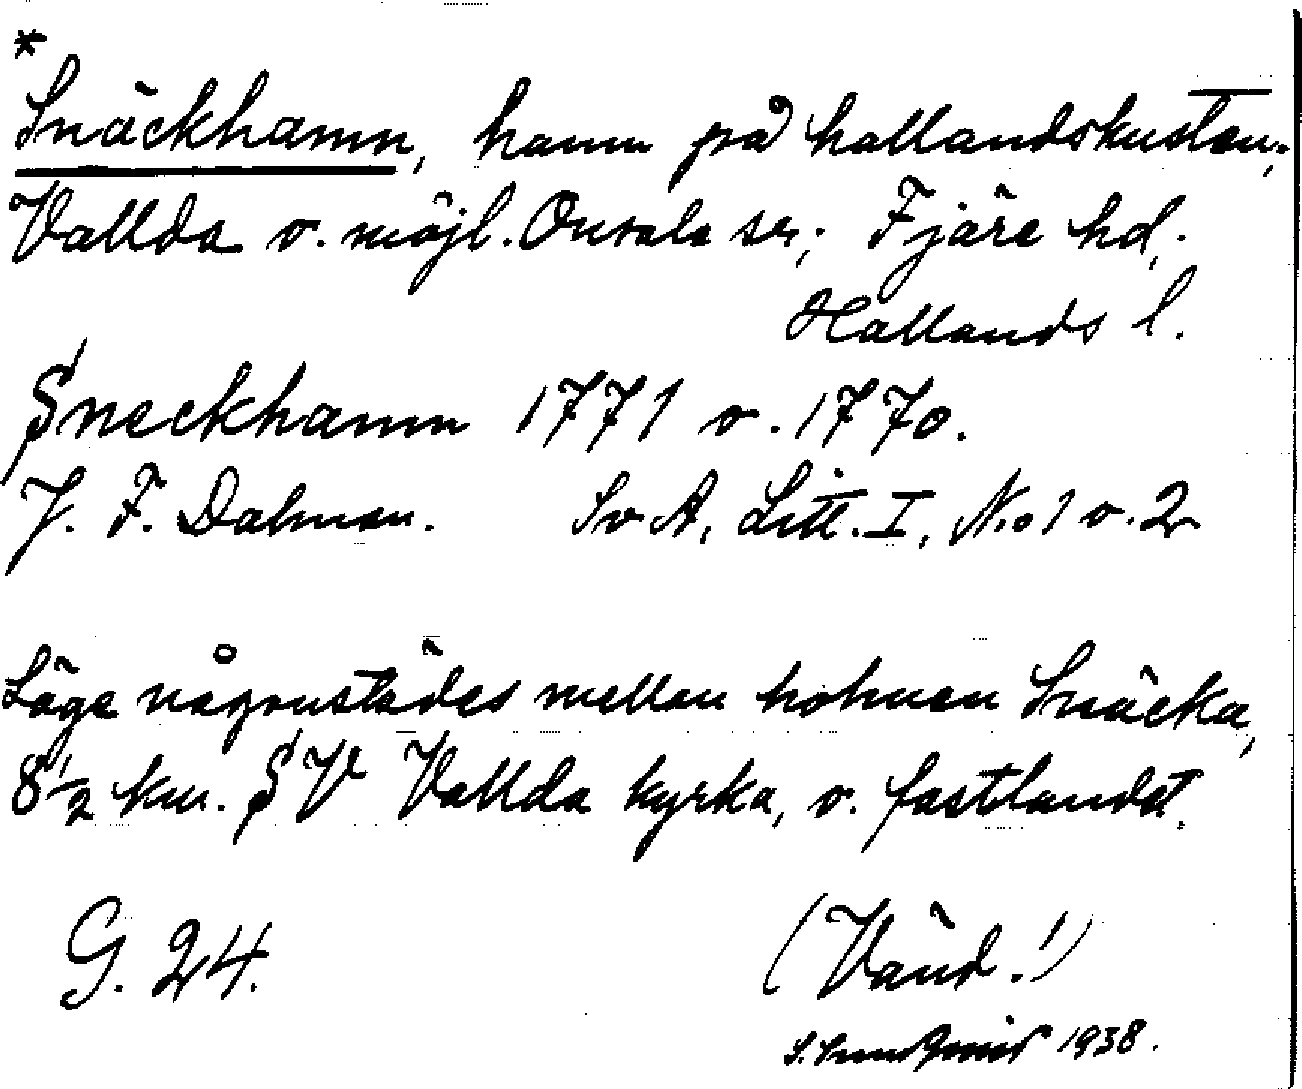 *
Snäckhamn, hamn på hallandskusten,
Vallda o. möjl. Onsala sn, Fjäre hd,
Hallands l.
Sneckhamn 1771 o. 1770.
J. F. Dalman. SvA, Litt. I, No 1 o. 2
Läge någonstädes mellan holmen Snäcka,
8 1/2 km. SV Vallda kyrka, o. fastlandet.
G. 24. (Vänd!)
1938.